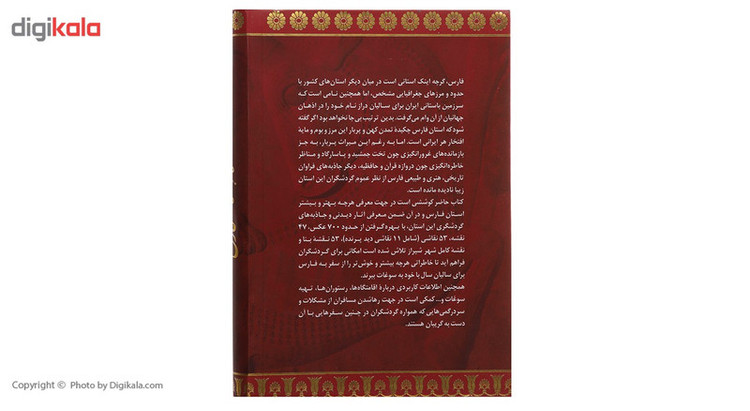 digikala
فارس، گرچه اینک استانی است در میان دیگر استان‌های کشور با
حدود و مرزهای جغرافیایی مشخص، اما همچنین نامی است که
سرزمین باستانی ایران برای سالیان دراز نام خود را در اذهان
جهانیان از آن وام می‌گرفت. بدین ترتیب بی‌جا نخواهد بود اگر گفته
شود که استان فارس چکیدهٔ تمدن کهن و پربار این مرز و بوم و مایهٔ
افتخار هر ایرانی است. اما به رغم این میراث پربار، به جز
بازمانده‌های غرورانگیزی چون تخت جمشید و پاسارگاد و مناظر
خاطره‌انگیزی چون دروازه قرآن و حافظیه، دیگر جاذبه‌های فراوان
تاریخی، هنری و طبیعی فارس از نظر عموم گردشگران این استان
زیبا نادیده مانده است.
کتاب حاضر کوششی است در جهت معرفی هرچه بهتر و بیشتر
استان فارس و در آن ضمن معرفی آثار دیدنی و جاذبه‌های
گردشگری این استان، با بهره‌گرفتن از حدود ۷۰۰ عکس، ۴۷
نقشه، ۵۳ نقاشی (شامل ۱۱ نقاشی دید پرنده)، ۵۳ نقشهٔ بنا و
نقشهٔ کامل شهر شیراز تلاش شده است امکانی برای گردشگران
فراهم آید تا خاطراتی هرچه بیشتر و خوش‌تر را از سفر به فارس
برای سالیان سال با خود به سوغات ببرند.
همچنین اطلاعات کاربردی دربارهٔ اقامتگاه‌ها، رستوران‌ها، تهیه
سوغات و... کمکی است در جهت رهاشدن مسافران از مشکلات و
سردرگمی‌هایی که همواره گردشگران در چنین سفرهایی با آن
دست به گریبان هستند.
Copyright © Photo by Digikala.com